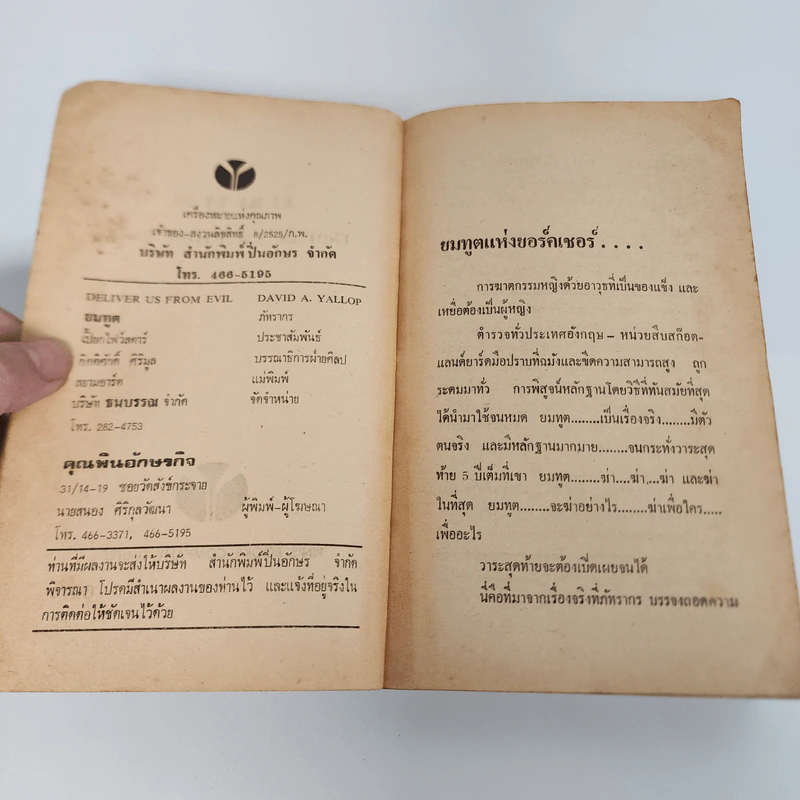 เครื่องหมายแห่งคุณภาพ
เจ้าของ-สงวนลิขสิทธิ์ 8/2525/ก.พ.
บริษัท สำนักพิมพ์ปิ่นอักษร จำกัด
โทร. 466-5195
DELIVER US FROM EVIL DAVID A. YALLOP
ยมทูต ภัทรากร
เปี๊ยกไฟว์สตาร์ ประชาสัมพันธ์
กิตติศักดิ์ ศิริมูล บรรณาธิการฝ่ายศิลป
สยามอาร์ต แม่พิมพ์
บริษัท ธนบรรณ จำกัด จัดจำหน่าย
โทร. 282-4753
คุณพินอักษรกิจ
31/14-19 ซอยวัดสังข์กระจาย
นายสนอง ศิริกุลวัฒนา ผู้พิมพ์-ผู้โฆษณา
โทร. 466-3371, 466-5195
ท่านที่มีผลงานจะส่งให้บริษัท สำนักพิมพ์ปิ่นอักษร จำกัด
พิจารณา โปรดมีสำเนาผลงานของท่านไว้ และแจ้งที่อยู่จริงใน
การติดต่อให้ชัดเจนไว้ด้วย
ยมทูตแห่งยอร์คเชอร์ . . . .
การฆาตกรรมหญิงด้วยอาวุธที่เป็นของแข็ง และ
เหยื่อต้องเป็นผู้หญิง
ตำรวจทั่วประเทศอังกฤษ – หน่วยสืบสก๊อต-
แลนด์ยาร์ดมือปราบที่ฉมังและขีดความสามารถสูง ถูก
ระดมมาทั่ว การพิสูจน์หลักฐานโดยวิธีที่ทันสมัยที่สุด
ได้นำมาใช้จนหมด ยมทูต........เป็นเรื่องจริง........มีตัว
ตนจริง และมีหลักฐานมากมาย........จนกระทั่งวาระสุด
ท้าย 5 ปีเต็มที่เขา ยมทูต........ฆ่า....ฆ่า...ฆ่า และฆ่า
ในที่สุด ยมทูต........จะฆ่าอย่างไร........ฆ่าเพื่อใคร.....
เพื่ออะไร
วาระสุดท้ายจะต้องเปิดเผยจนได้
นี่คือที่มาจากเรื่องจริงที่ภัทรากร บรรจงถอดความ